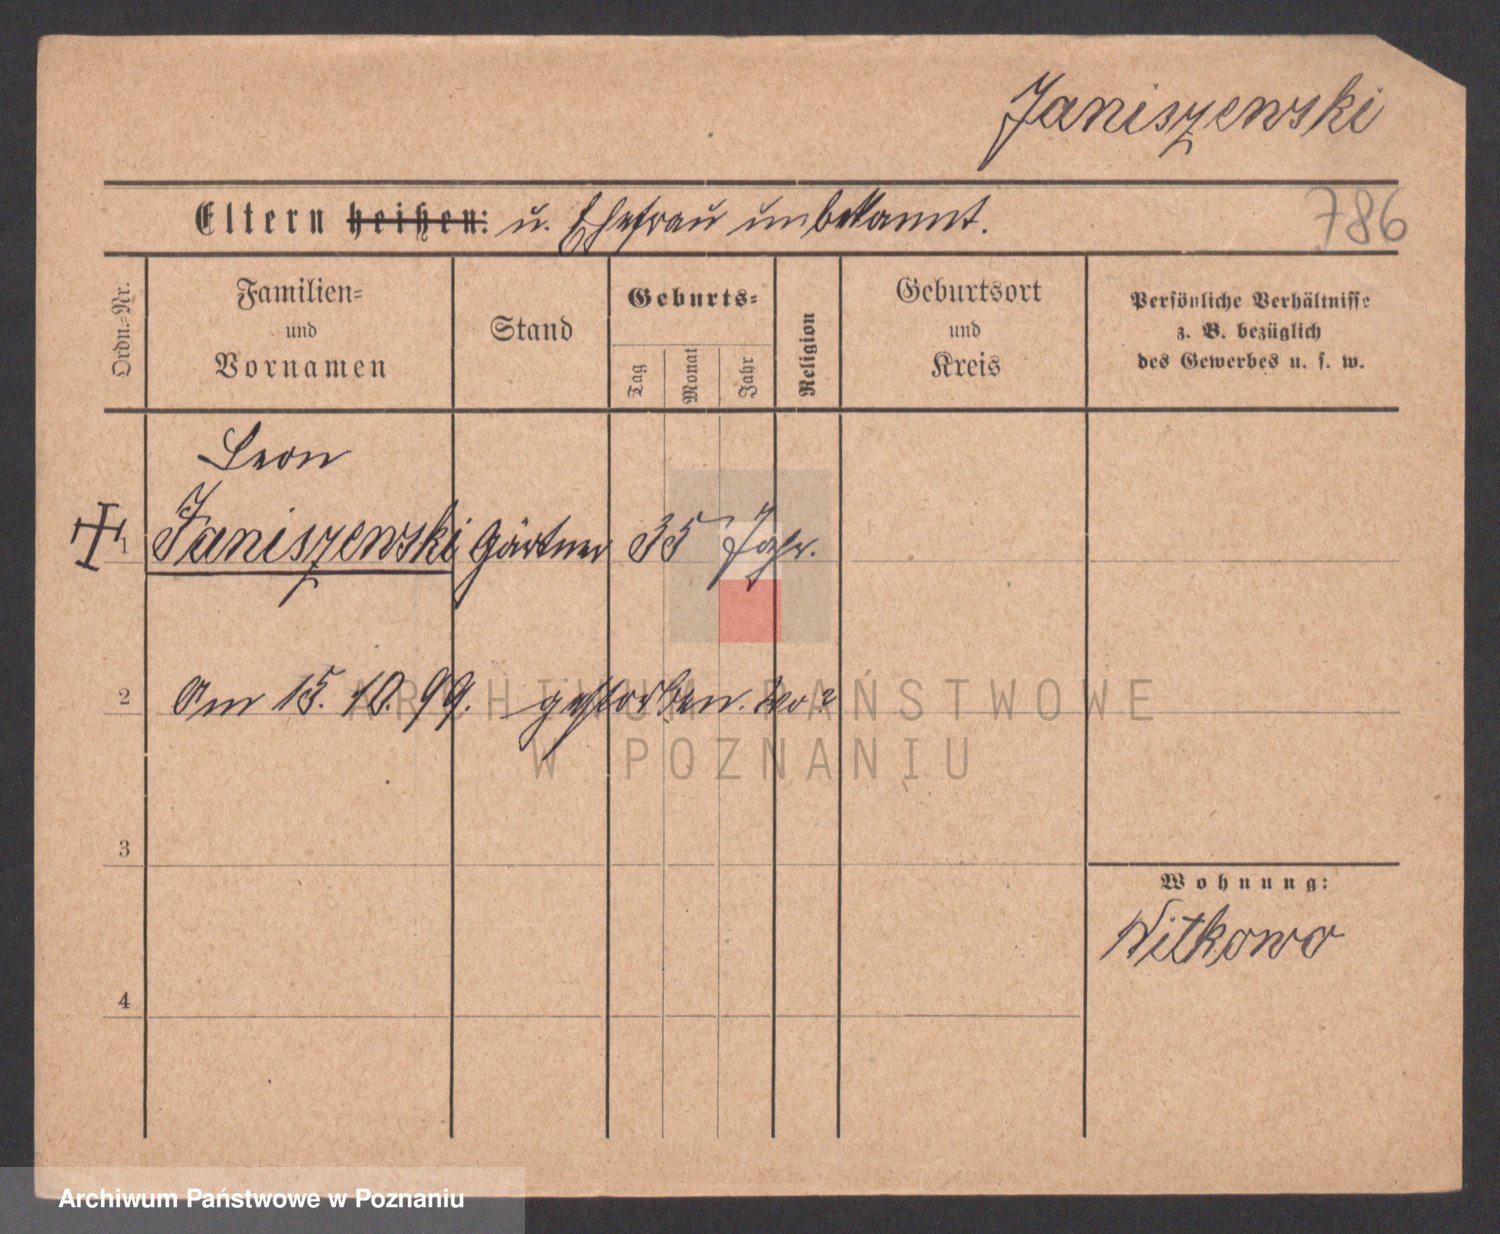 Janiszewski
Eltern heißen: u. Ehefrau unbekannt.
786
Ordn.-Nr.
Familien-
und
Vornamen
Stand
Geburts-
Tag
Monat
Jahr
Religion
Geburtsort
und
Kreis
Persönliche Verhältnisse
z. B. bezüglich
des Gewerbes u. s. w.
Leon
1 Janiszewski Gärtner 35 Jahr.
2 Am 15. 10. 99. gestorben. Wo?
ARCHIWUM PAŃSTWOWE
W POZNANIU
3
Wohnung:
Witkowo
4
Archiwum Państwowe w Poznaniu